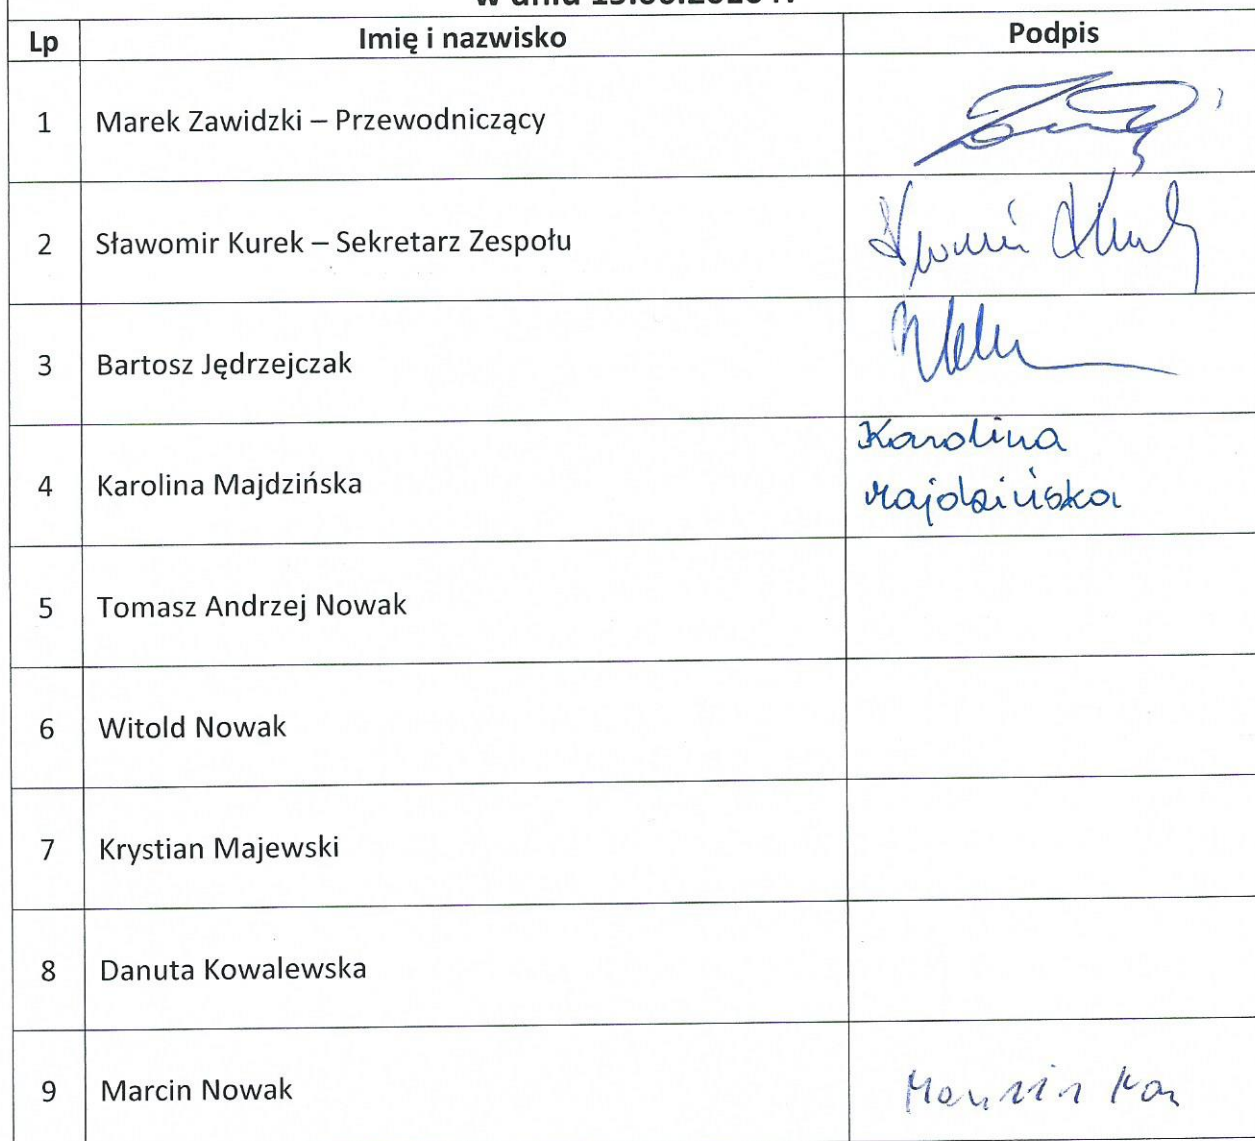 w dniu
Lp Imię i nazwisko Podpis
1 Marek Zawidzki – Przewodniczący
2 Sławomir Kurek – Sekretarz Zespołu
3 Bartosz Jędrzejczak
4 Karolina Majdzińska Karolina
Majdzińska
5 Tomasz Andrzej Nowak
6 Witold Nowak
7 Krystian Majewski
8 Danuta Kowalewska
9 Marcin Nowak Marcin